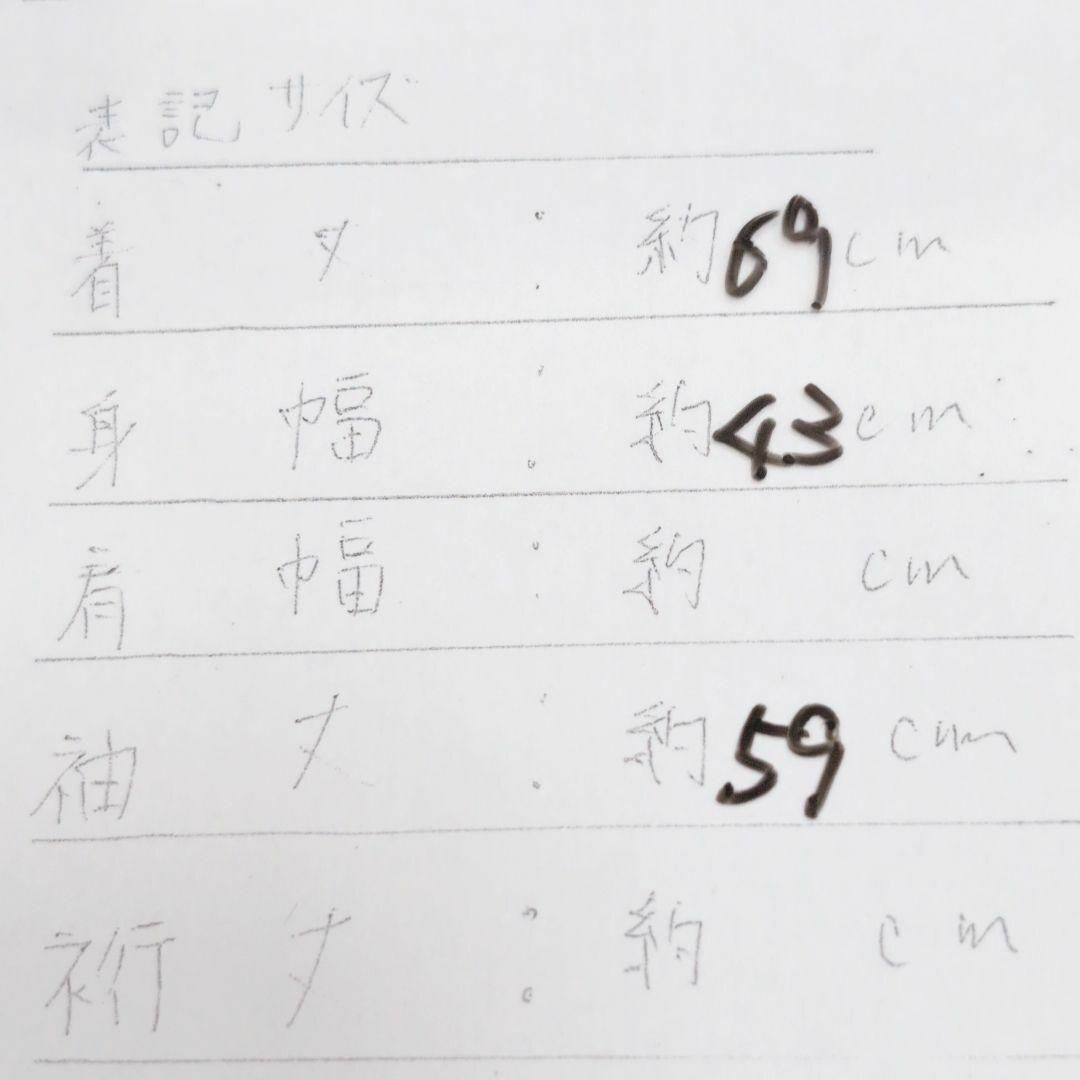 表記サイズ
着丈:約69cm
身幅:約43cm
肩幅:約 cm
袖丈:約59cm
裄丈:約 cm